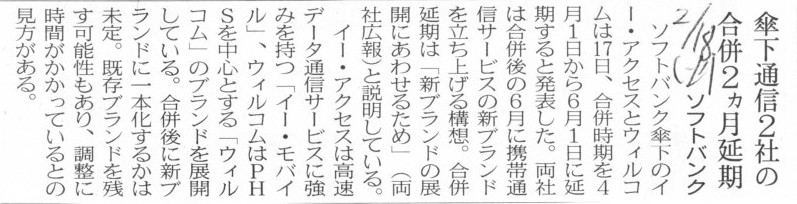 傘下通信2社の
合併2ヵ月延期
ソフトバンク
2/18
　ソフトバンク傘下のイ
ー・アクセスとウィルコ
ムは17日、合併時期を4
月1日から6月1日に延
期すると発表した。両社
は合併後の6月に携帯通
信サービスの新ブランド
を立ち上げる構想。合併
延期は「新ブランドの展
開にあわせるため」(両
社広報)と説明している。
　イー・アクセスは高速
データ通信サービスに強
みを持つ「イー・モバイ
ル」、ウィルコムはPH
Sを中心とする「ウィル
コム」のブランドを展開
している。合併後に新ブ
ランドに一本化するかは
未定。既存ブランドを残
す可能性もあり、調整に
時間がかかっているとの
見方がある。